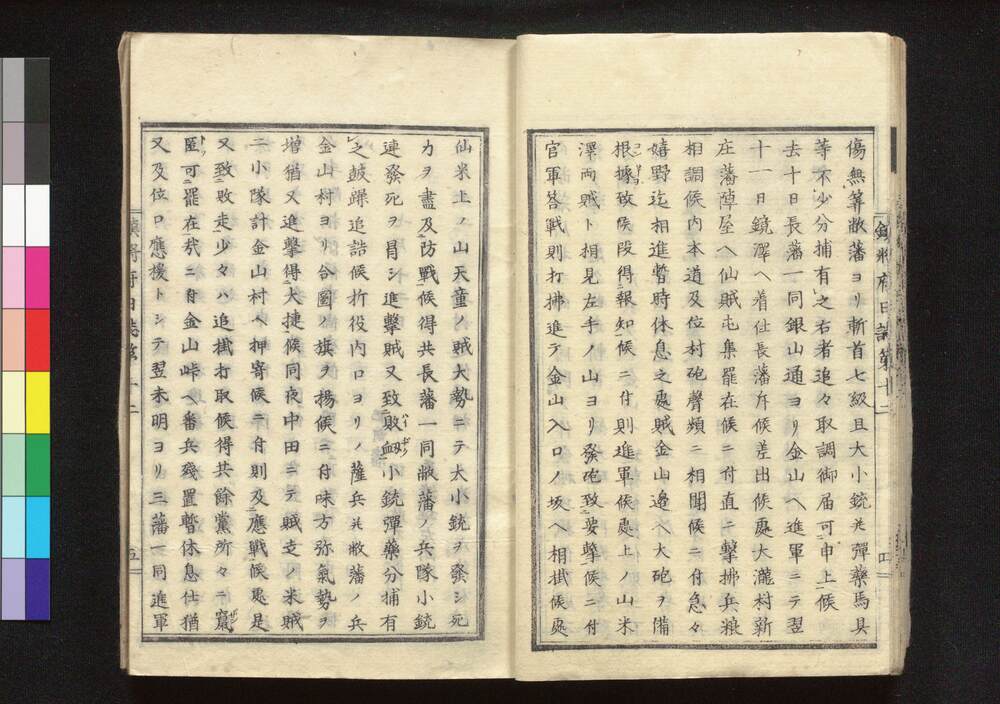 傷無算敝藩ヨリ斬首七級且大小銃并彈藥馬具
等不少分捕有之右者追々取調御届可申上候
去十日長藩一同銀山通ヨリ金山ヘ進軍ニテ翌
十一日鏡澤ヘ着仕長藩斥候差出候處大瀧村新
庄藩陣屋ヘ仙賊屯集罷在候ニ付直ニ撃拂兵粮
相調候内本道及位村砲聲頻ニ相聞候ニ付急々
嬉野迄相進暫時休息之處賊金山邊ヘ大砲ヲ備
根據致候段得報知候ニ付則進軍候處上ノ山米
澤兩賊ト相見左手ノ山ヨリ發砲致要撃候ニ付
官軍答戦則打拂進テ金山入口ノ坂ヘ相掛候處
鎮將府日誌第十二
四
仙米上ノ山天童ノ賊大勢ニテ大小銃ヲ發シ死
力ヲ盡及防戰候得共長藩一同敝藩ノ兵隊小銃
連發死ヲ冒シ進撃賊又致敗衂小銃彈藥分捕有
之鼓躁追詰候折役内口ヨリノ薩兵并敝藩ノ兵
金山村ヨリ合圖ノ旗ヲ揚候ニ付味方弥氣勢ヲ
増猶又進撃得大捷候同夜中田ニテ賊走ノ米賊
二小隊計金山村ヘ押寄候ニ付則及應戰候處是
又致敗走少々ハ追掛打取候得共餘黨所々ニ竄
匿可罷在哉ニ付金山峠ヘ番兵殘置暫休息仕猶
又及位口應援トシテ翌未明ヨリ三藩一同進軍
鎮將府日誌第十二
五